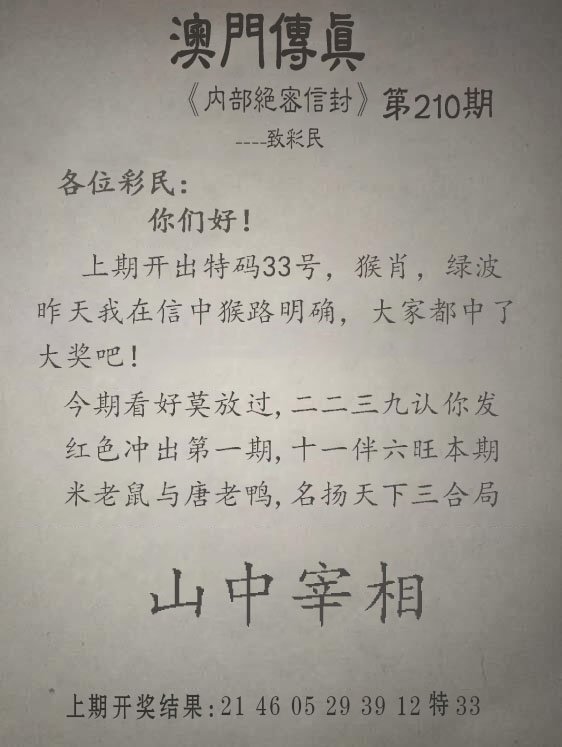 澳門傳眞
《内部絕密信封》第210期
----致彩民
各位彩民：
你们好！
上期开出特码33号，猴肖，绿波
昨天我在信中猴路明确，大家都中了
大奖吧！
今期看好莫放过,二二三九认你发
红色冲出第一期,十一伴六旺本期
米老鼠与唐老鸭,名扬天下三合局
山中宰相
上期开奖结果:21 46 05 29 39 12 特 33